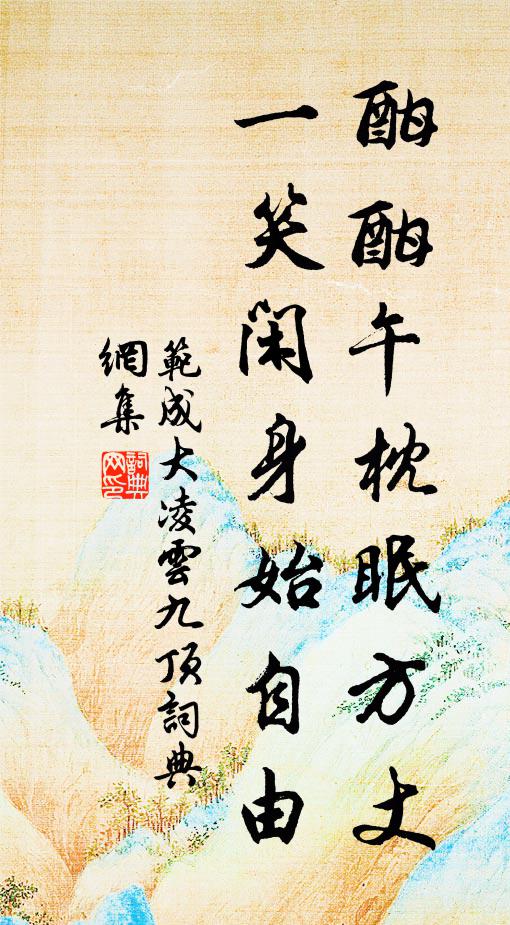 酣酣午枕眠方丈
一笑閑身始自由
範成大凌雲九頂詞典
網集
詞典網印